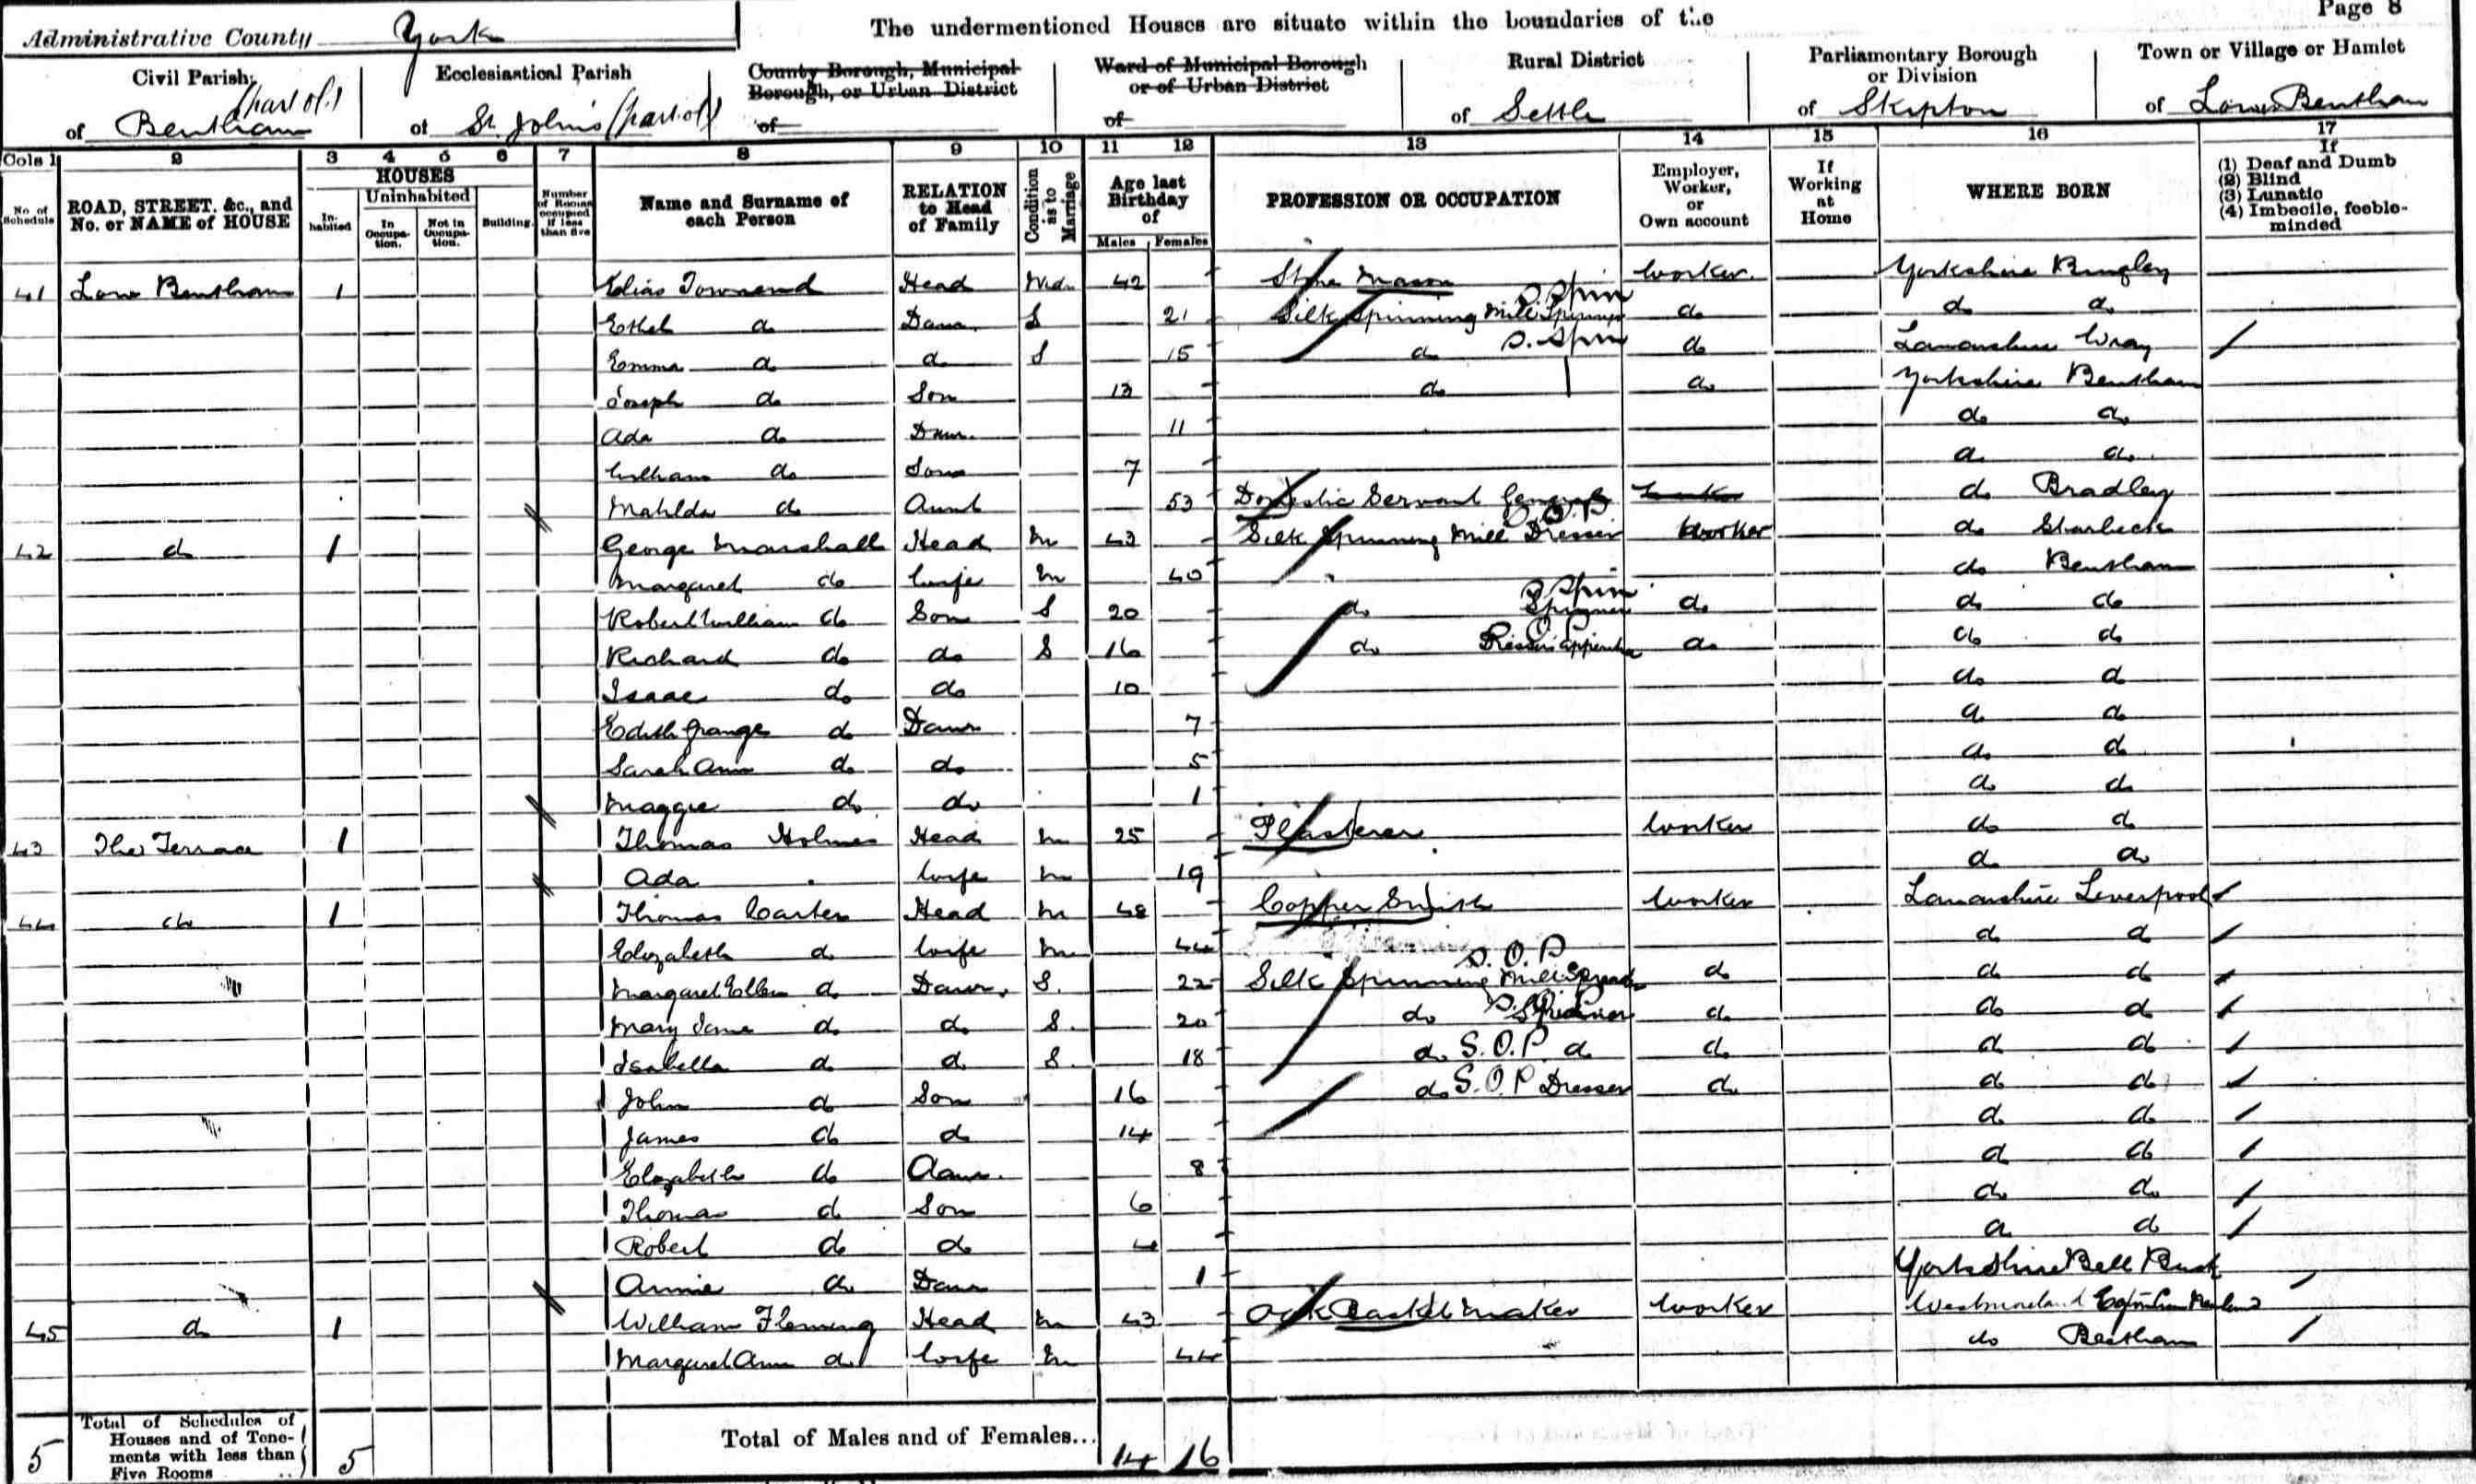 Page 8
Administrative County York The undermentioned Houses are situate within the boundaries of the
Civil Parish Ecclesiastical Parish County Borough, Municipal Borough, or Urban District Ward of Municipal Borough or of Urban District Rural District Parliamentary Borough or Division Town or Village or Hamlet
of Bentham (part of) of St. John's (part of) of of of Settle of Skipton of Lower Bentham
Cols 1 2 3 4 5 6 7 8 9 10 11 12 13 14 15 16 17
No. of Schedule ROAD, STREET, &c., and No. or NAME of HOUSE HOUSES Inhabited Uninhabited In Occupation. Not in Occupation. Building. Number of Rooms occupied if less than five Name and Surname of each Person RELATION to Head of Family Condition as to Marriage Age last Birthday of Males Females PROFESSION OR OCCUPATION Employer, Worker, or Own account If Working at Home WHERE BORN If (1) Deaf and Dumb (2) Blind (3) Lunatic (4) Imbecile, feeble-minded
41 Low Bentham 1 Elias Townend Head Wid. 42 Stone Mason Worker Yorkshire Bingley
Ethel do Daur. S 21 Silk Spinning Mill Spinner S. Spin do do do
Emma do do S 15 do S. Spin do Lancashire Wray
Joseph do Son 13 do do Yorkshire Bentham
Ada do Daur. 11 do do
William do Son 7 do do
Matilda do Aunt 53 Domestic Servant General do Bradley
42 do 1 George Marshall Head M 43 Silk Spinning Mill Dresser S.O.P Worker do Starbeck
Margaret do Wife M 40 do Bentham
Robert William do Son S 20 do Spinner S Spin do do do
Richard do do S 16 do Dresser's Apprentice do do do
Isaac do do 10 do do
Edith Grange do Daur 7 do do
Sarah Ann do do 5 do do
Maggie do do 1 do do
43 The Terrace 1 Thomas Holmes Head M 25 Plasterer Worker do do
Ada Wife M 19 do do
44 do 1 Thomas Carter Head M 48 Copper Smith Worker Lancashire Liverpool
Elizabeth do Wife M 44 do do
Margaret Ellen do Daur. S. 22 Silk Spinning Mill S.O.P do do do
Mary Jane do do S. 20 do do do do
Isabella do do S. 18 do S.O.P. do do do do
John do Son 16 do S.O.P Dresser do do do
James do do 14 do do
Elizabeth do Daur. 8 do do
Thomas do Son 6 do do
Robert do do 4 do do
Annie do Daur 1 Yorkshire Bell Busk
45 do 1 William Fleming Head M 43 Oak Basket Maker Worker Westmoreland
Margaret Ann do Wife M 44 do
5 Total of Schedules of Houses and of Tenements with less than Five Rooms 5 Total of Males and of Females... 14 16